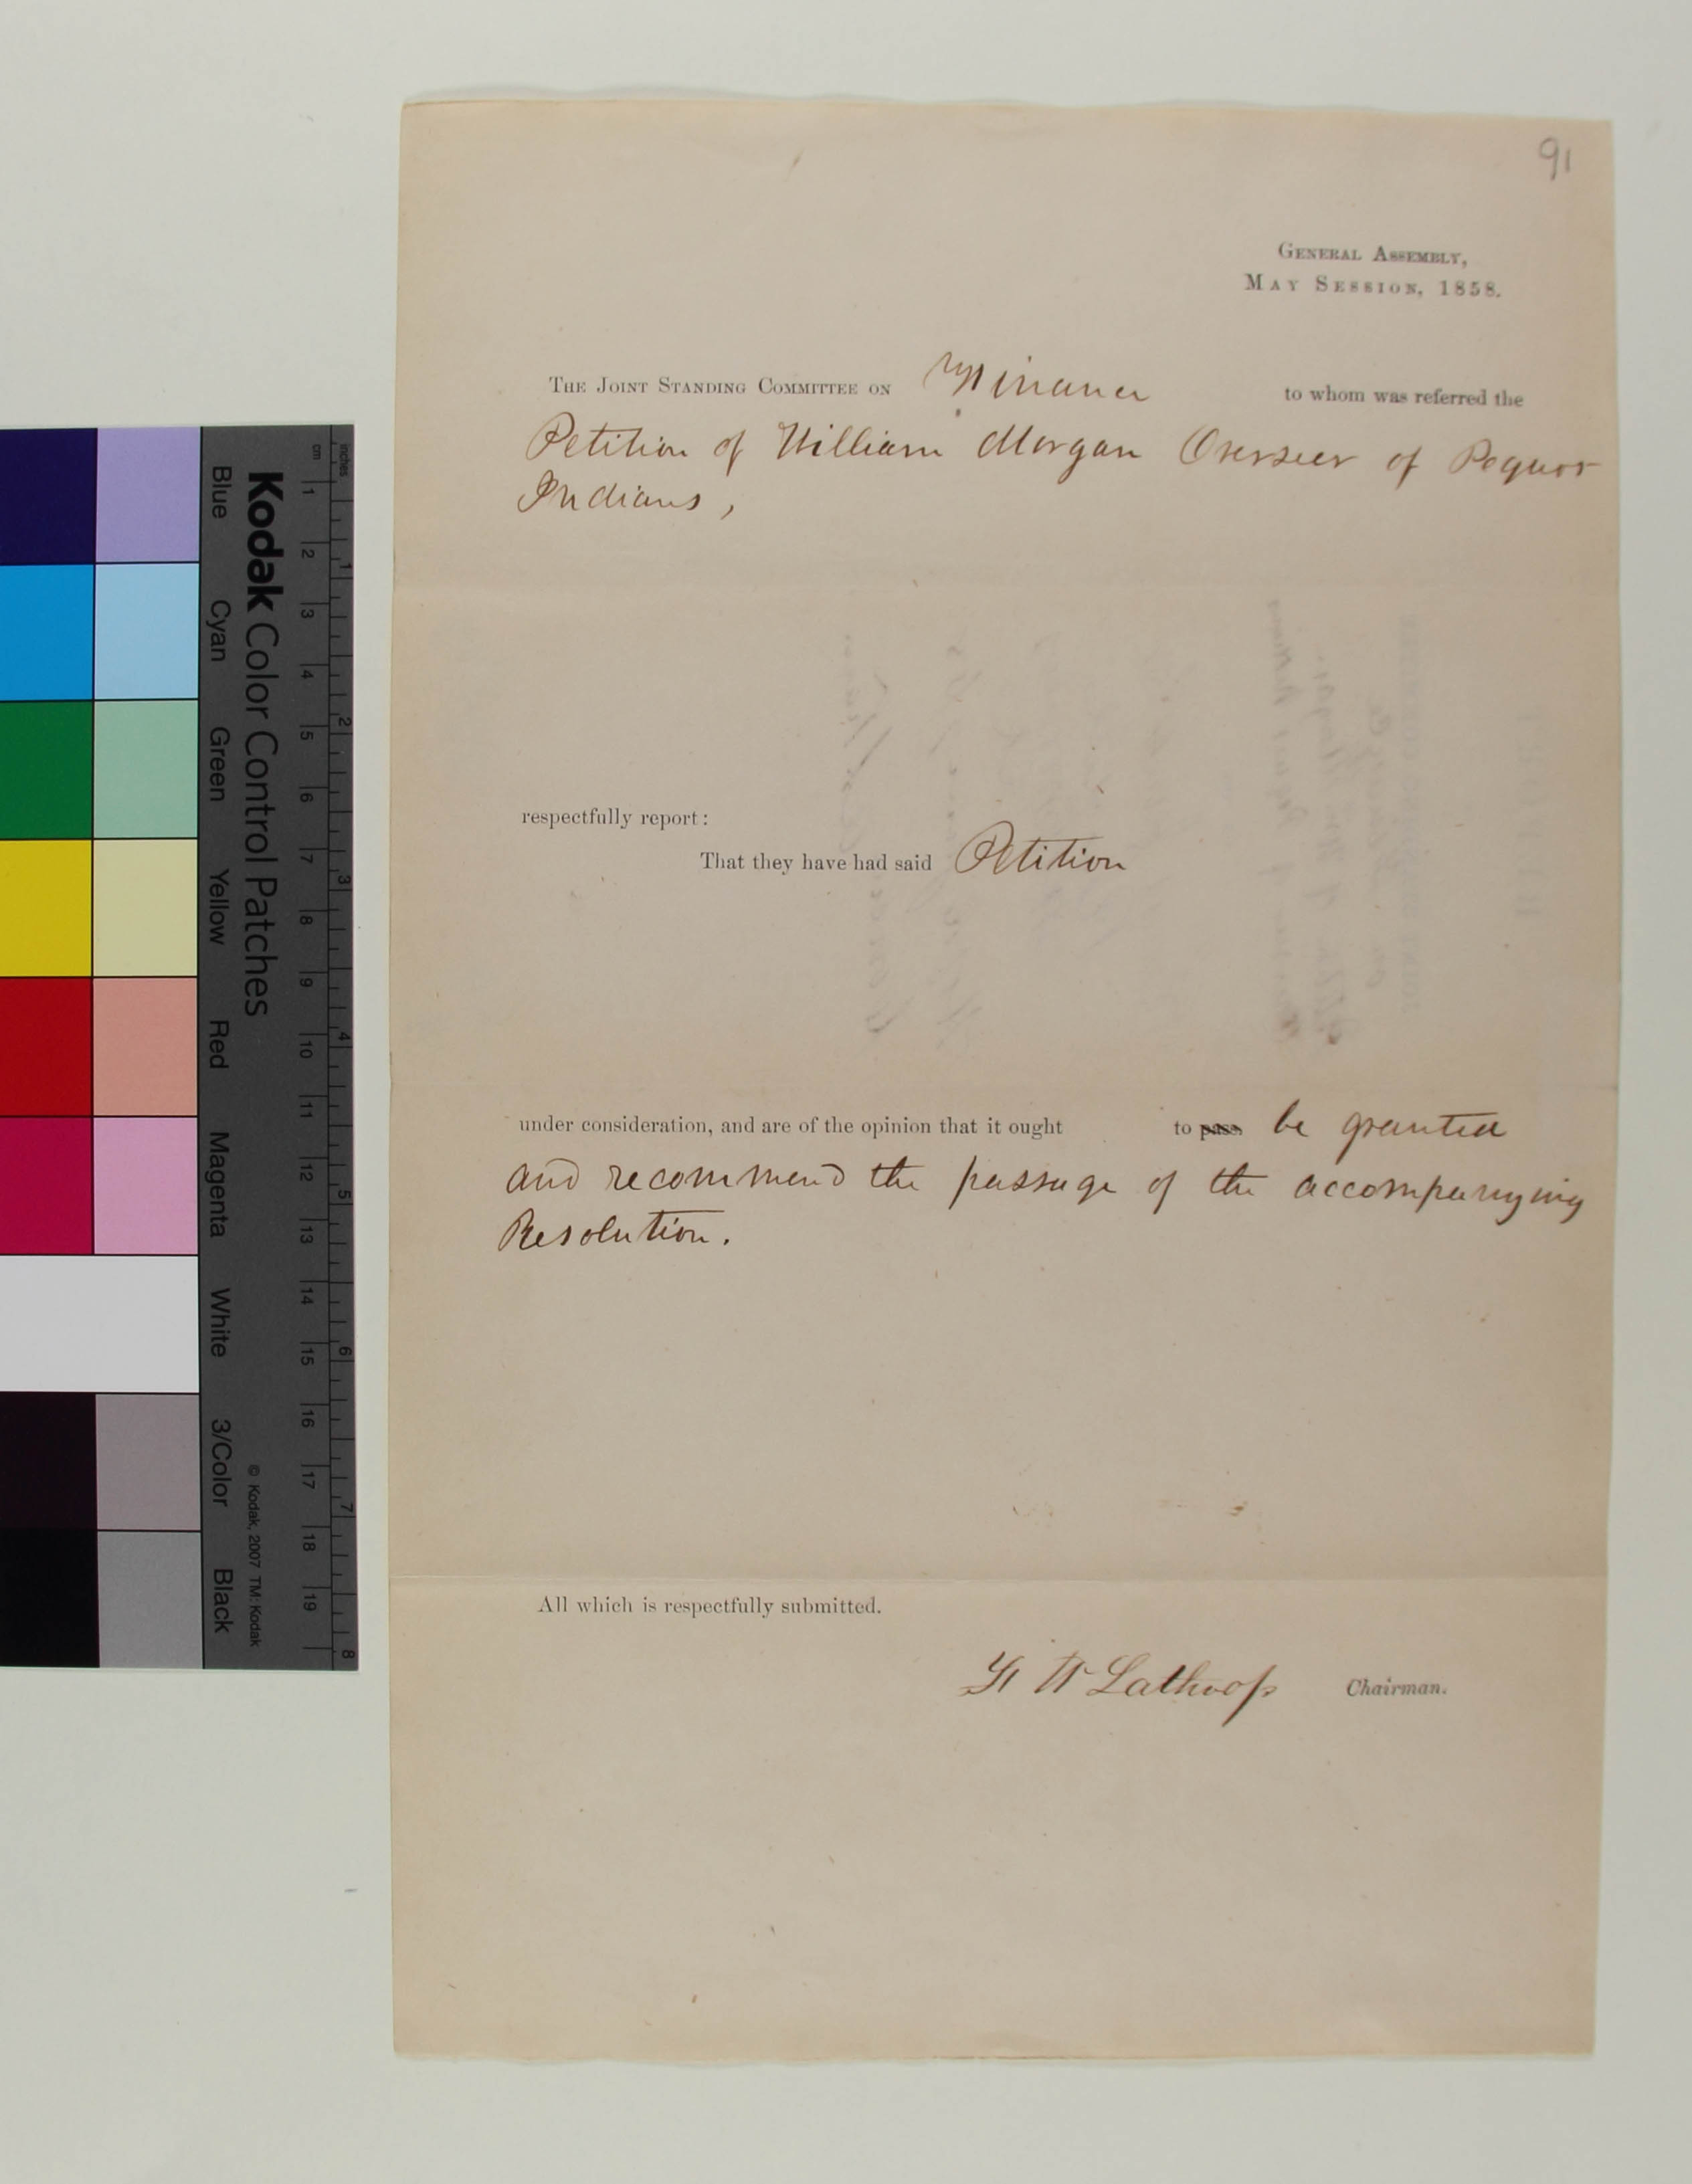 91
GENERAL ASSEMBLY,
MAY SESSION, 1858.
THE JOINT STANDING COMMITTEE ON Finance to whom was referred the
Petition of William Morgan Overseer of Pequot
Indians,
respectfully report:
That they have had said Petition
under consideration, and are of the opinion that it ought to pass. be granted
and recommend the passage of the accompanying
Resolution.
All which is respectfully submitted.
Lathrop Chairman.
Kodak Color Control Patches
© Kodak, 2007 TM: Kodak
Blue Cyan Green Yellow Red Magenta White 3/Color Black
cm 1 2 3 4 5 6 7 8 9 10 11 12 13 14 15 16 17 18 19
inches 1 2 3 4 5 6 7 8